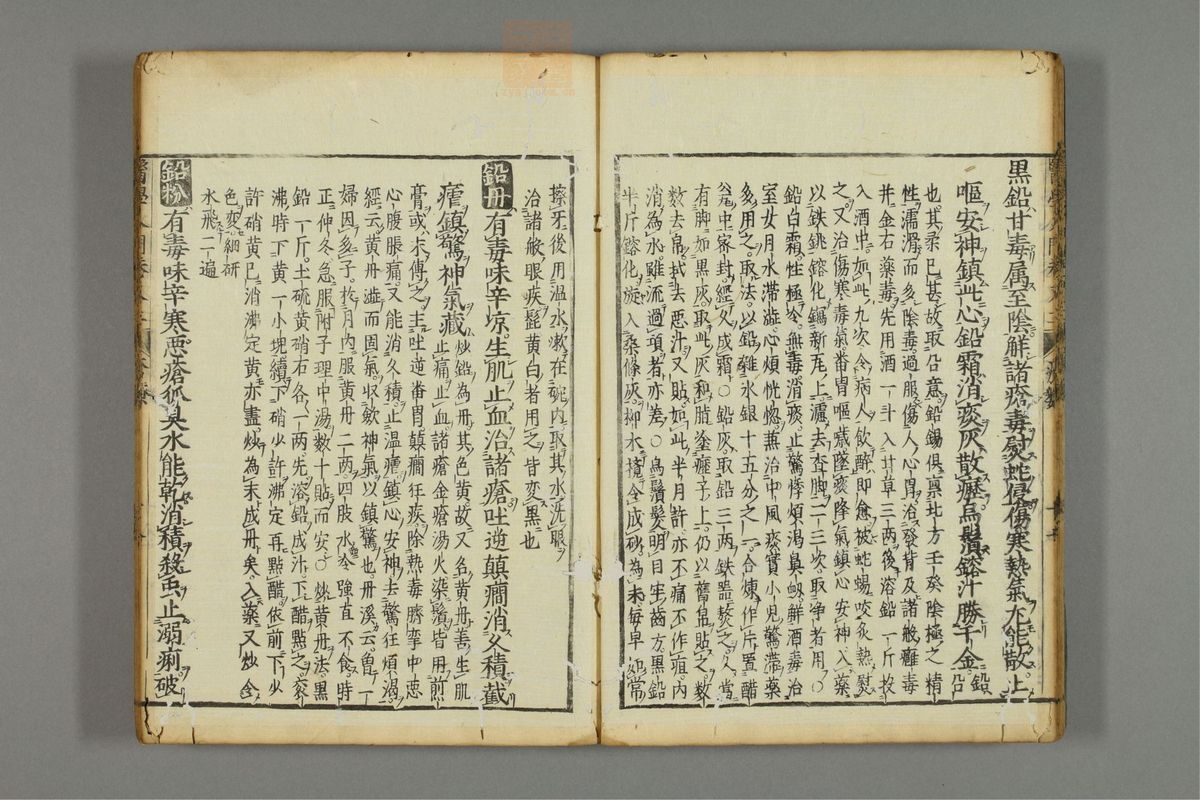 黒鉛甘毒属至陰解諸瘡毒熨蛇傷寒熱氣亢能散止
嘔安神鎮此心鉛霜消痰灰散癧烏鬚鎔汁勝千金鉛沿
也其柔已甚故取沿意鉛錫俱稟北方壬癸陰極之精
性濡滑而多陰毒過服傷人心胃治發背及諸般癰毒
并金石薬毒先用酒一斗入甘草三两後溶鉛一斤投
入酒中如此九次令病人飲醉即愈被蛇蝎咬炙熱熨
之又治傷寒毒氣畨胃嘔噦墜痰降氣鎮心安神入薬
以鉄銚鎔化鍚新瓦上濾去査脚二三次取浄者用〇
鉛白霜性極冷無毒消痰止驚悸煩渇鼻衄解酒毒治
室女月水滞澁心煩恍惚薫治中風痰實小児驚滞薬
多用之取法以鉛雜水銀十五分之一合煉作片置醋
瓮中密封經久成霜〇鉛灰取鉛三两鉄器熬之久當
有脚如黒灰取此灰和脂塗癧子上仍以舊帛貼之数
数去帛拭去悪汁又貼如此半月許亦不痛不作瘡内
消為水雖流過項者亦差〇烏鬚髪明目牢歯方黒鉛
半斤鎔化旋入桑條灰柳木攪令成砂為末毎早如常
擦牙後用温水漱在碗内取其水洗眼
治諸般眼疾髭黄白者用之皆変黒也
鉛丹有毒味辛凉生肌止血治諸瘡吐逆顛癇消久積截
瘧鎮驚神氣藏炒鉛為丹其色黄故又名黄丹善生肌
止痛止血諸瘡金瘡湯火染鬚皆用煎
膏或末傅之主吐逆畨胃顛癇年疾除熱毒臍攣中悪
心腹脹痛又能消久積止温瘧鎮心安神去驚狂煩渇
經云黄丹澁而固氣収斂神氣以鎮驚也丹溪云曽一
婦因多子於月内服黄丹二两四肢冷強直不食時
正仲冬急服附子理中湯数十貼而安〇炒黄丹法黒
鉛一斤土硫黄硝石各一两先溶鉛成汁下醋點之衮
沸時下黄一小塊續下硝少許沸定再點醋依前下少
許硝黄已消沸定黄亦盡炒為末成丹矣入薬又炒令
色変細研
水飛二遍
鉛粉有毒味辛寒悪瘡狐臭水能乾消積殺虫止溺痢破